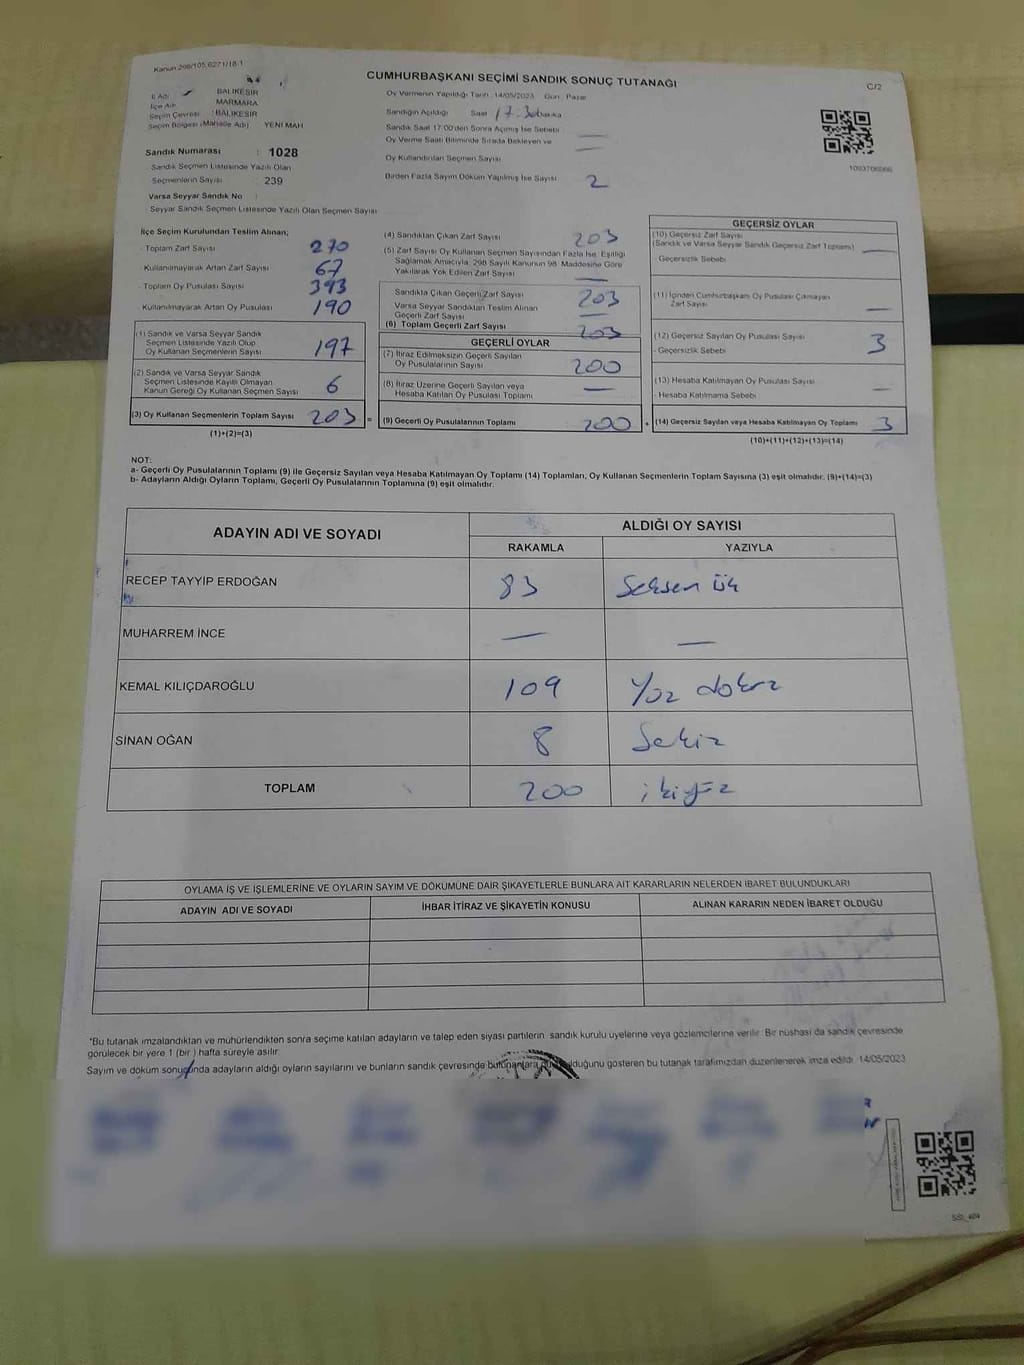 Kanun 298/105,6271/18-1
CUMHURBAŞKANI SEÇİMİ SANDIK SONUÇ TUTANAĞI
C/2
İl Adı : BALIKESİR
İlçe Adı : MARMARA
Seçim Çevresi : BALIKESİR
Seçim Bölgesi (Mahalle Adı) YENİ MAH
Sandık Numarası : 1028
Sandık Seçmen Listesinde Yazılı Olan
Seçmenlerin Sayısı : 239
Varsa Seyyar Sandık No :
Seyyar Sandık Seçmen Listesinde Yazılı Olan Seçmen Sayısı
Oy Vermenin Yapıldığı Tarih : 14/05/2023 Gün : Pazar
Sandığın Açıldığı Saat 17.30 Dakika
Sandık Saat 17:00'den Sonra Açılmış İse Sebebi
Oy Verme Saati Bitiminde Sırada Bekleyen ve
Oy Kullandırılan Seçmen Sayısı
Birden Fazla Sayım Döküm Yapılmış İse Sayısı 2
1093706866
İlçe Seçim Kurulundan Teslim Alınan;
- Toplam Zarf Sayısı 270
- Kullanılmayarak Artan Zarf Sayısı 67
- Toplam Oy Pusulası Sayısı 393
- Kullanılmayarak Artan Oy Pusulası 190
(1) Sandık ve Varsa Seyyar Sandık
Seçmen Listesinde Yazılı Olup
Oy Kullanan Seçmenlerin Sayısı 197
(2) Sandık ve Varsa Seyyar Sandık
Seçmen Listesinde Kayıtlı Olmayan
Kanun Gereği Oy Kullanan Seçmen Sayısı 6
(3) Oy Kullanan Seçmenlerin Toplam Sayısı 203 =
(1)+(2)=(3)
(4) Sandıktan Çıkan Zarf Sayısı 203
(5) Zarf Sayısı Oy Kullanan Seçmen Sayısından Fazla İse, Eşitliği
Sağlamak Amacıyla, 298 Sayılı Kanunun 98. Maddesine Göre
Yakılarak Yok Edilen Zarf Sayısı —
Sandıkta Çıkan Geçerli Zarf Sayısı 203
Varsa Seyyar Sandıktan Teslim Alınan
Geçerli Zarf Sayısı —
(6) Toplam Geçerli Zarf Sayısı 203
GEÇERLİ OYLAR
(7) İtiraz Edilmeksizin Geçerli Sayılan
Oy Pusulalarının Sayısı 200
(8) İtiraz Üzerine Geçerli Sayılan veya
Hesaba Katılan Oy Pusulası Toplamı —
(9) Geçerli Oy Pusulalarının Toplamı 200 +
GEÇERSİZ OYLAR
(10) Geçersiz Zarf Sayısı
(Sandık ve Varsa Seyyar Sandık Geçersiz Zarf Toplamı) —
- Geçersizlik Sebebi
(11) İçinden Cumhurbaşkanı Oy Pusulası Çıkmayan
Zarf Sayısı —
(12) Geçersiz Sayılan Oy Pusulası Sayısı 3
- Geçersizlik Sebebi
(13) Hesaba Katılmayan Oy Pusulası Sayısı —
- Hesaba Katılmama Sebebi
(14) Geçersiz Sayılan veya Hesaba Katılmayan Oy Toplamı 3
(10)+(11)+(12)+(13)=(14)
NOT:
a- Geçerli Oy Pusulalarının Toplamı (9) ile Geçersiz Sayılan veya Hesaba Katılmayan Oy Toplamı (14) Toplamları, Oy Kullanan Seçmenlerin Toplam Sayısına (3) eşit olmalıdır. (9)+(14)=(3)
b- Adayların Aldığı Oyların Toplamı, Geçerli Oy Pusulalarının Toplamına (9) eşit olmalıdır.
ADAYIN ADI VE SOYADI ALDIĞI OY SAYISI
RAKAMLA YAZIYLA
RECEP TAYYİP ERDOĞAN 83 Seksen üç
MUHARREM İNCE — —
KEMAL KILIÇDAROĞLU 109 Yüz dokuz
SİNAN OĞAN 8 Sekiz
TOPLAM 200 ikiyüz
OYLAMA İŞ VE İŞLEMLERİNE VE OYLARIN SAYIM VE DÖKÜMÜNE DAİR ŞİKAYETLERLE BUNLARA AİT KARARLARIN NELERDEN İBARET BULUNDUKLARI
ADAYIN ADI VE SOYADI İHBAR İTİRAZ VE ŞİKAYETİN KONUSU ALINAN KARARIN NEDEN İBARET OLDUĞU
"Bu tutanak imzalandıktan ve mühürlendikten sonra seçime katılan adayların ve talep eden siyasi partilerin sandık kurulu üyelerine veya gözlemcilerine verilir. Bir nüshası da sandık çevresinde
görülecek bir yere 1 (bir) hafta süreyle asılır.
Sayım ve döküm sonucunda adayların aldığı oyların sayılarını ve bunların sandık çevresinde bulunanlara duyurulduğunu gösteren bu tutanak tarafımızdan düzenlenerek imza edildi. 14/05/2023
SSI_404